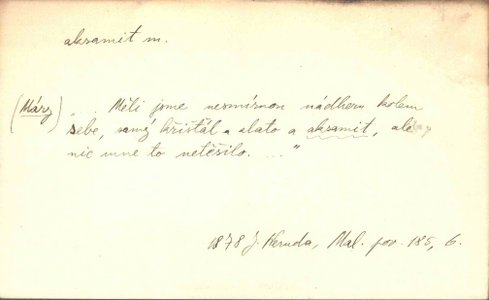 aksamit m.
(Márz) „... Měli jsme nesmírnou nádheru kolem
sebe, samý křišťál a zlato a aksamit, ale
nic mne to netěšilo. ..."
1878 J. Neruda, Mal. pov. 185, 6.